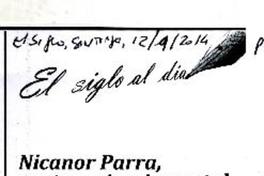 El Siglo, Santiago, 12/9/2014
El siglo al día
Nicanor Parra,